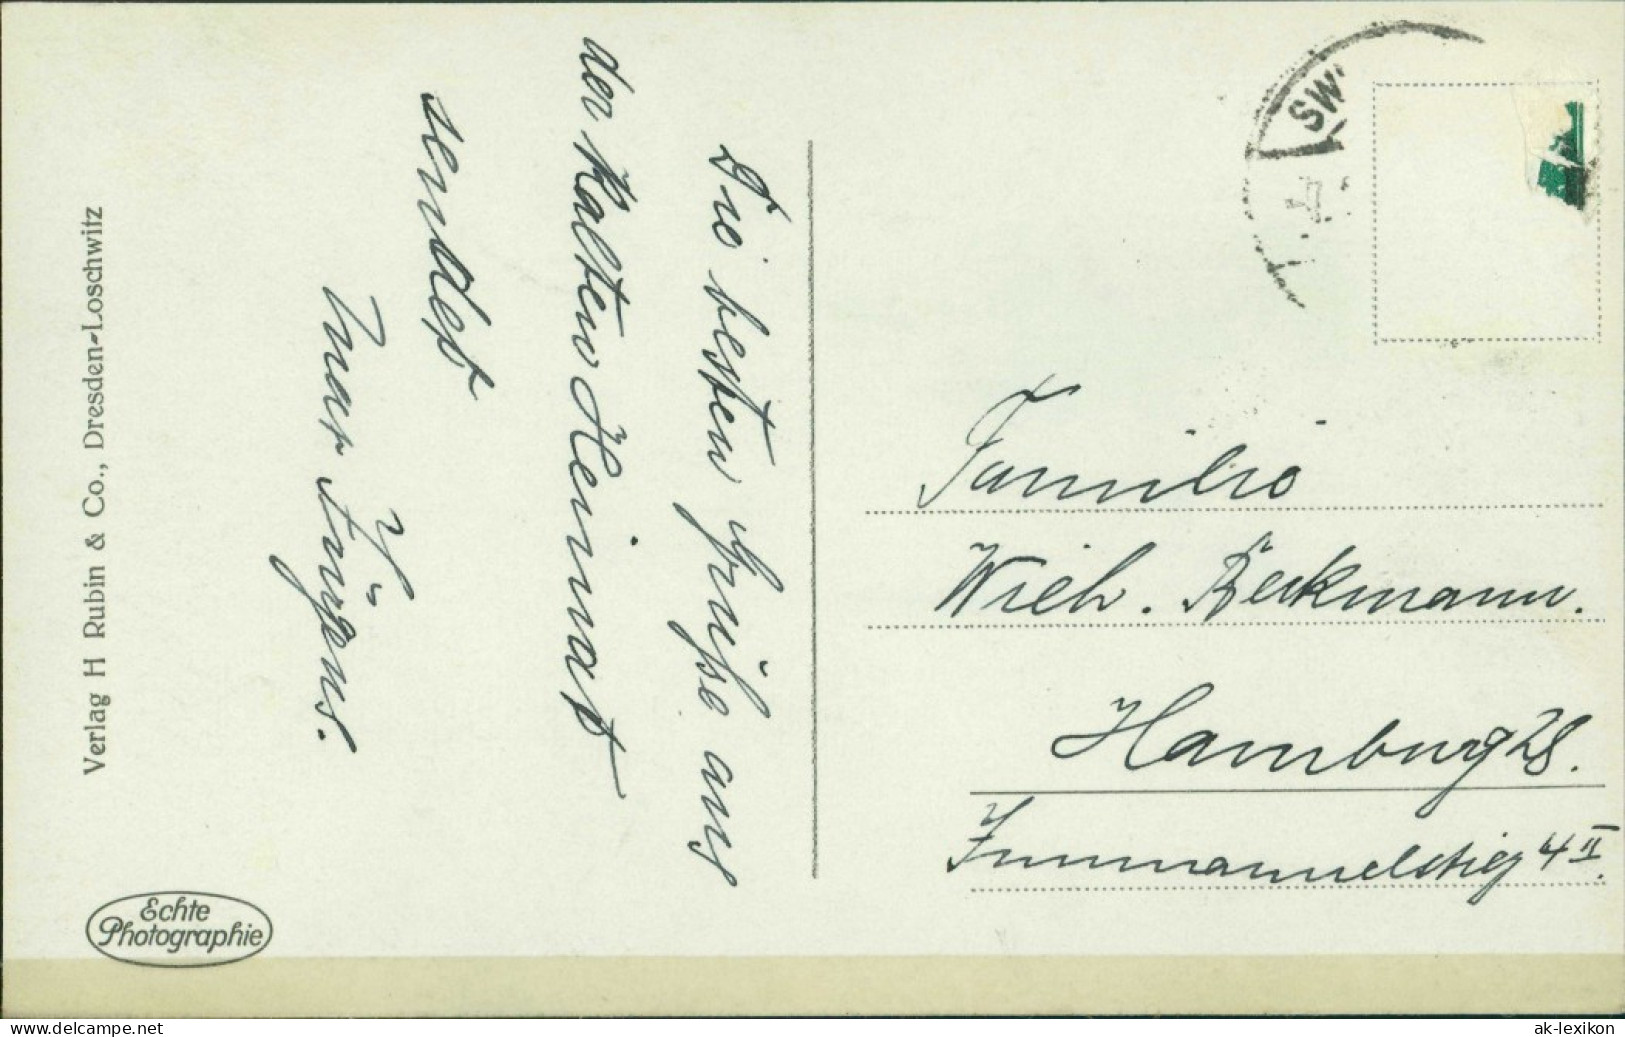 Die besten Grüße aus
der kalten Heimat
sendet
Max Jürgens.
Familie
Wieh. Beckmann.
Hamburg 28.
Immanuelstieg 4 II.
SW
Verlag H Rubin & Co., Dresden-Loschwitz
Echte
Photographie
www.delcampe.net
ak-lexikon